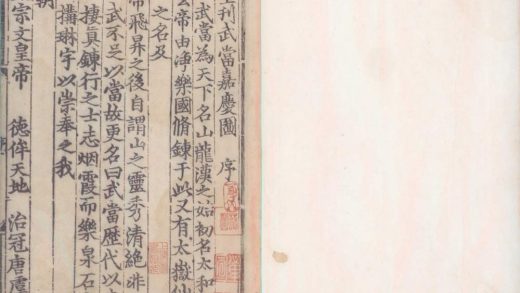 刊武當嘉慶圖 序
武當為天下名山龍漢之始初名太和
玄帝由淨樂國脩鍊于此又有太嶽仙
之名及
帝飛昇之後自謂山之靈秀清絕非
武不足以當故更名曰武當歷代以
棲真鍊行之士志烟霞而樂泉石
攝琳宇以崇奉之我
朝
宗文皇帝 德侔天地 治冠唐虞